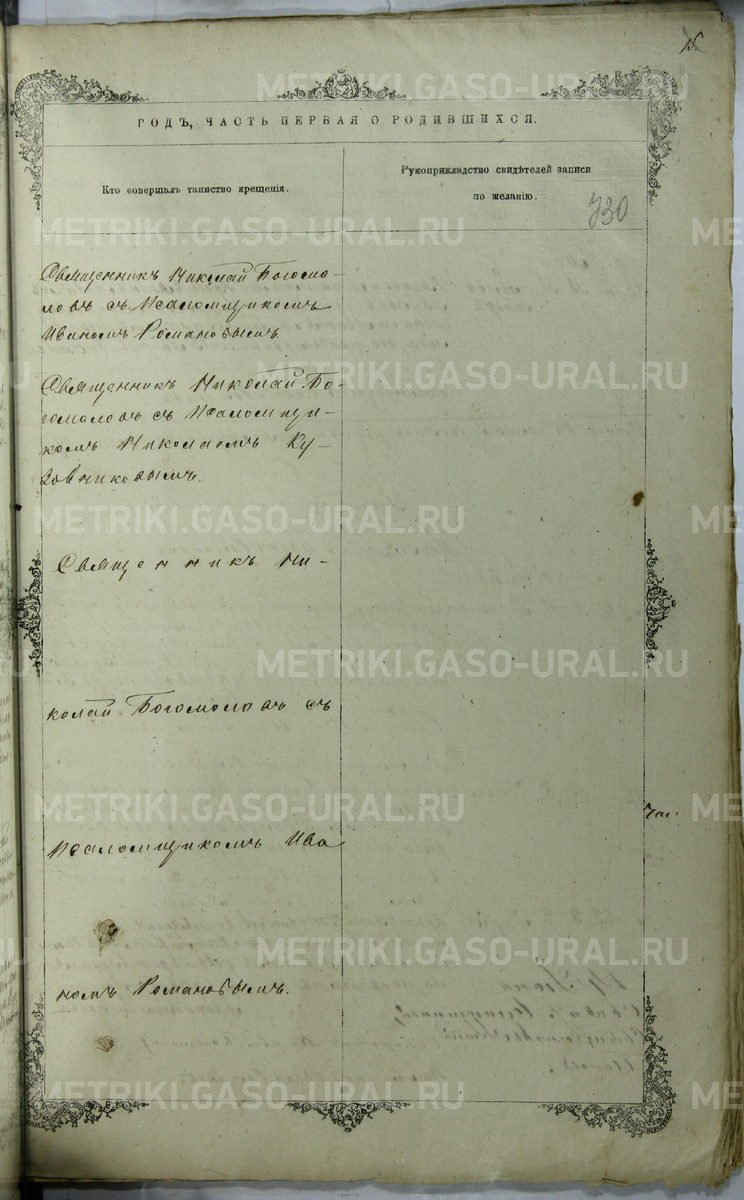 15
ГОДЪ, ЧАСТЬ ПЕРВАЯ О РОДИВШИХСЯ.
Кто совершалъ таинство крещенія.
Рукоприкладство свидѣтелей записи
по желанію.
730
Священникъ Николай Богомо-
ловъ съ Псаломщикомъ
Иваномъ Романовымъ
Священникъ Николай Бо-
гомоловъ съ Псаломщи-
комъ Николаемъ Ку-
зовниковымъ.
Священникъ Ни-
колай Богомоловъ съ
Псаломщикомъ Ива
номъ Романовымъ.
METRIKI.GASO-URAL.RU